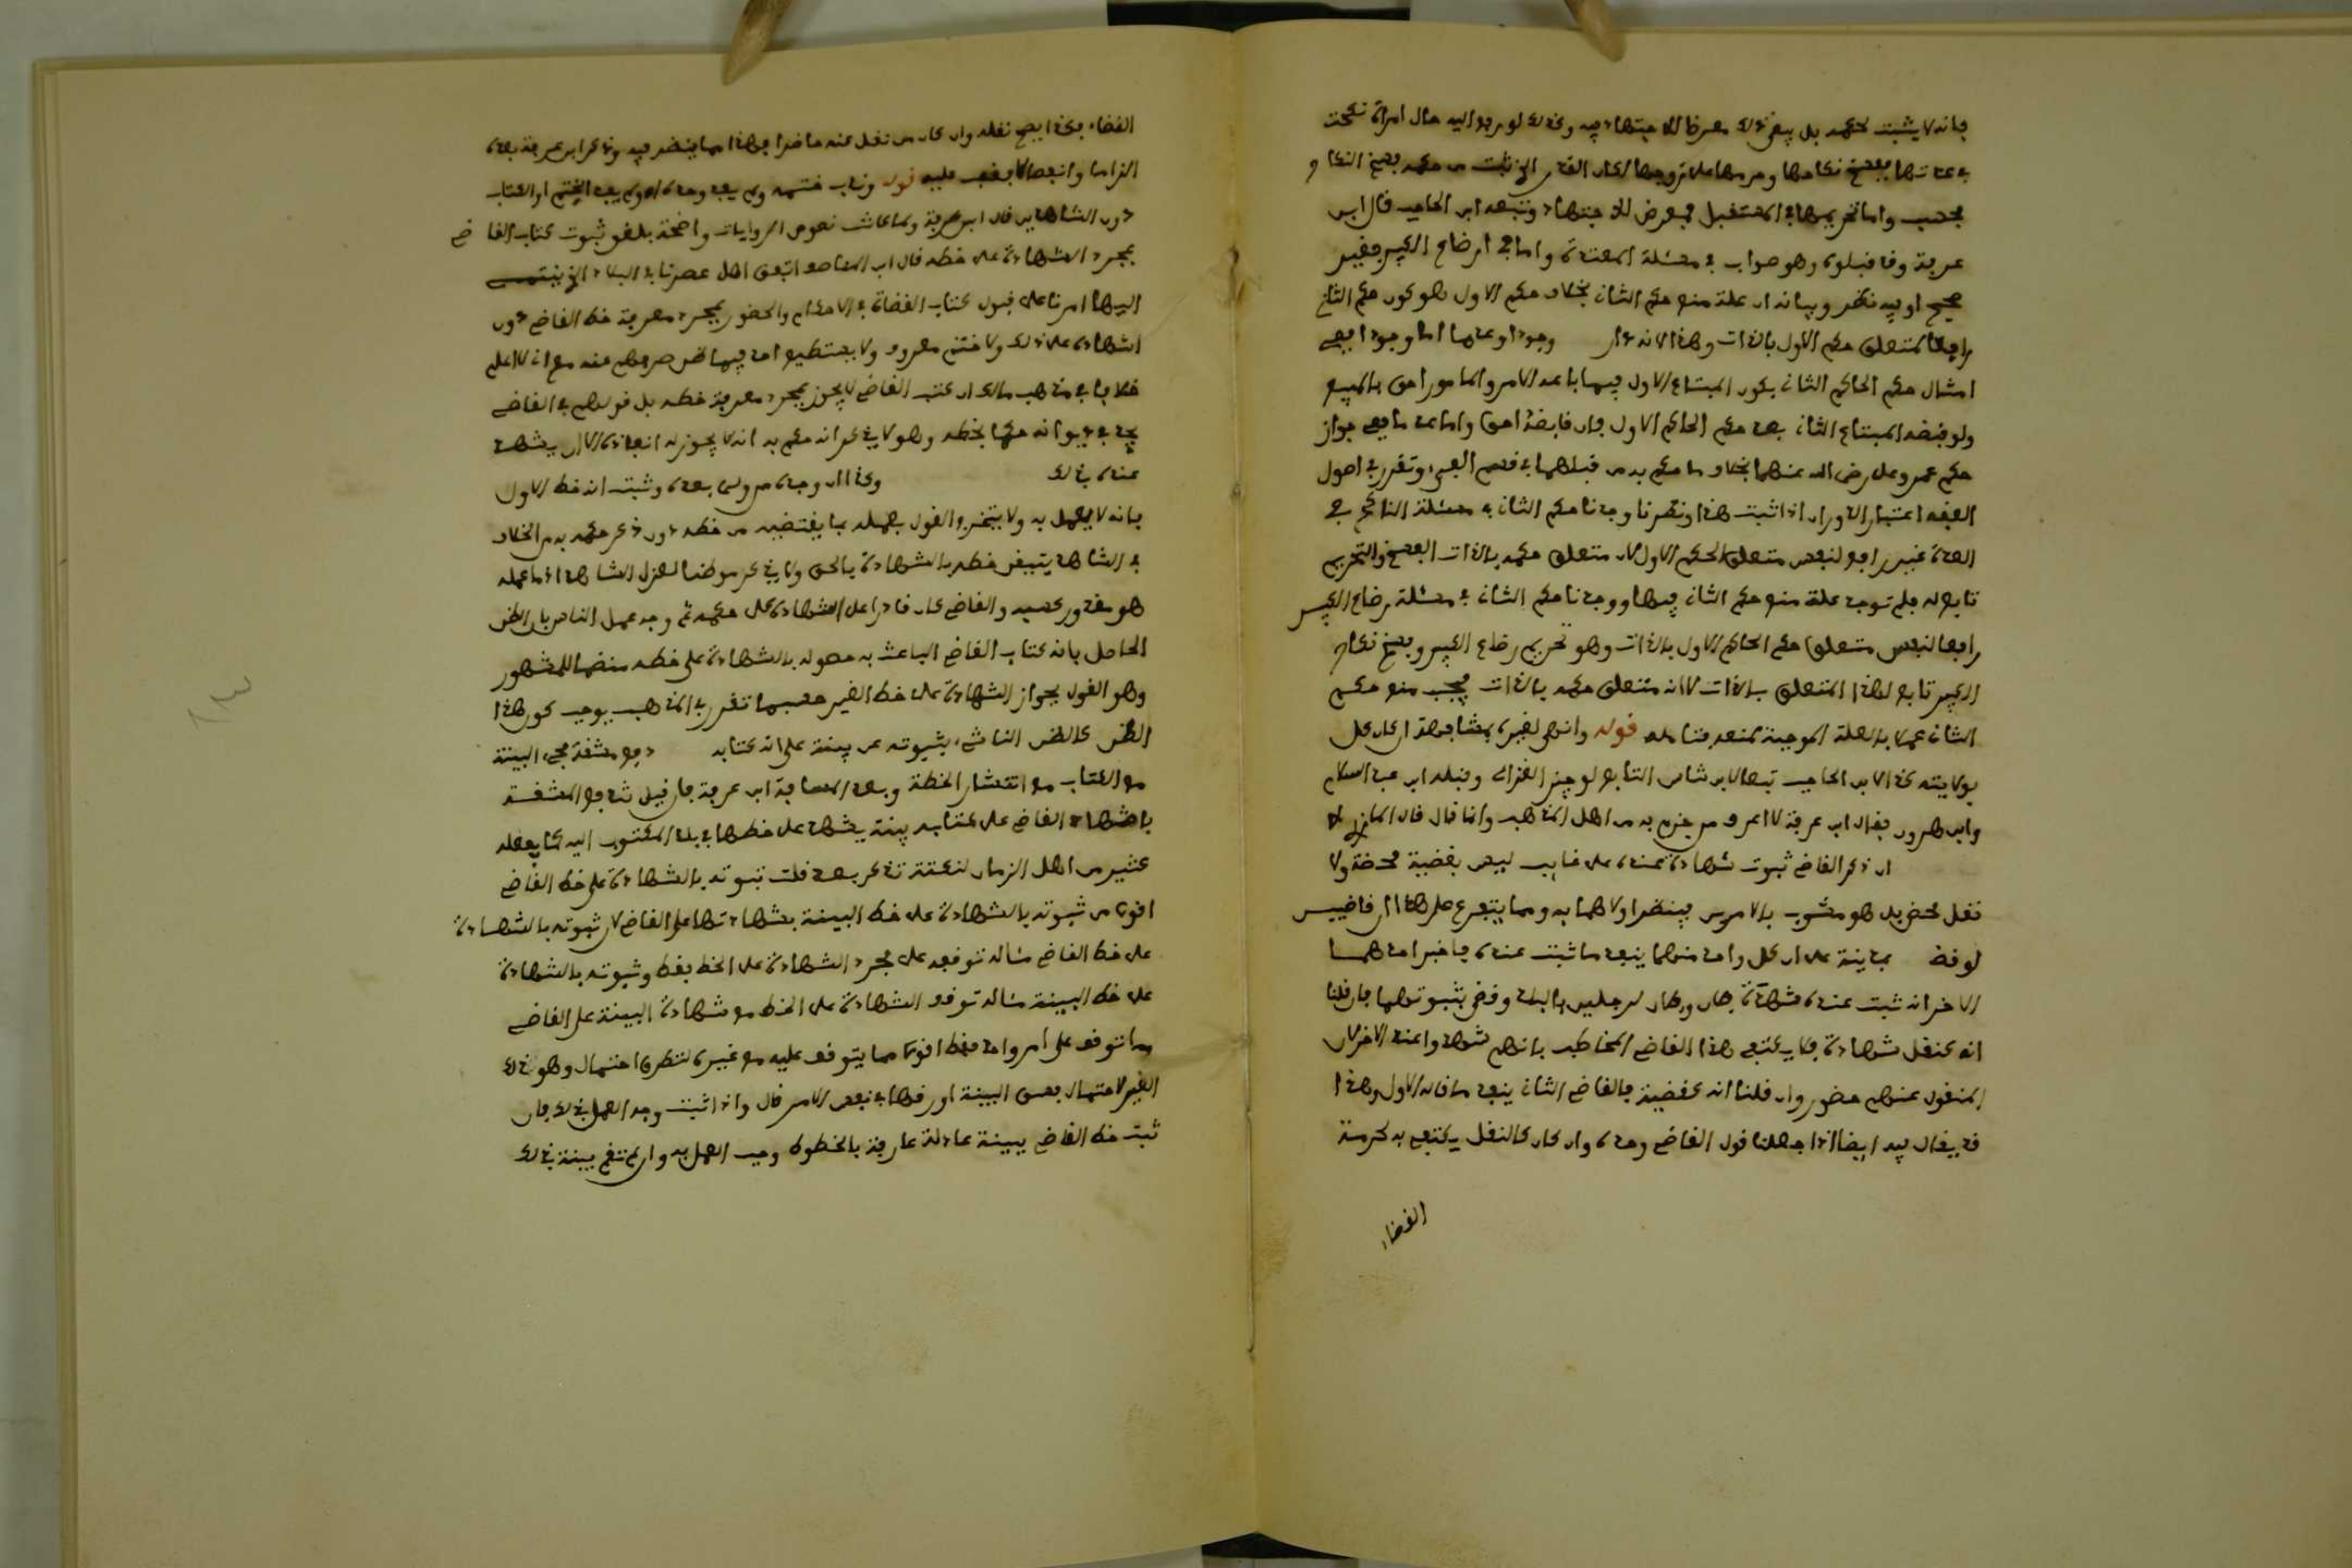 فإنه لا يثبت لحكمه بل يبقى ذلك معرضا للاجتهاد فيه وكذلك لو رفع اليه حال امراة نكحت
في عدتها ففسخ نكاحها وحرمها على زوجها لكان القدر الذي ثبت من حكمه فسخ النكاح
فحسب واما تحريمها في المستقبل فمعرض للاجتهاد وتبعه ابن الحاجب قال ابن
عرفة وقد قبلوه وهو صواب في مسئلة المعتدة واما في ارضاع الكبير فغير
صحيح او فيه نظر وبيانه ان علة منع حكم الثاني بخلاف حكم الاول هو كون حكم الثاني
رافعا لمتعلق حكم الاول بالذات وهذا لانه وجودا وعدما اما وجودا ففي
امثال حكم الحاكم الثاني بكون المبتاع الاول فيها باعد الامر والمامور احق بالمبيع
ولو قبضه المبتاع الثاني بعد حكم الحاكم الاول فان قابضه احق واما عدما ففي جواز
حكم عمر وعلي رضي الله عنهما بخلاف ما حكم به من قبلهما في قسم الفيء وتقرر في اصول
الفقه اعتبار الدوران اذا ثبت هذا ونظرنا وجدنا حكم الثاني في مسئلة الناكح في
العدة غير رافع لنفس متعلق الحكم الاول لان متعلق حكمه بالذات الفسخ والتحريم
تابع له فلم توجد علة منع حكم الثاني فيها ووجدنا حكم الثاني في مسئلة رضاع الكبير
رافعا لنفس متعلق حكم الحاكم الاول بالذات وهو تحريم رضاع الكبير وفسخ نكاح
الكبير تابع لهذا المتعلق بالذات لانه متعلق حكمه بالذات فيجب منع حكم
الثاني عملا بالعلة الموجبة لمنعه فتامله قوله وانهى لغيره بمشافهة ان كان كل
بولايته كذا لابن الحاجب تبعا لابن شاس التابع لوجيز الغزالي وقبله ابن عبد السلام
وابن هرون فقال ابن عرفة لا اعرف من جزم به من اهل المذهب وانما قال قال المازري
ان ذكر القاضي ثبوت شهادة عنده على غايب ليس بقضية محضة ولا
نقل محض بل هو مشوب بالامرين فينظر اولاهما به ومما يتفرع على هذا ان قاضيين
لو قضيا بمدينة على ان كل واحد منهما ينفذ ما ثبت عنده فاخبر احدهما
الاخر انه ثبت عنده شهادة فلان وفلان لرجلين بالبلد وقضى بثبوتهما فان قلنا
انه كنقل شهادة فلا يكتفي هذا القاضي المخاطب بانهم شهدوا عند الاخر لان
المنقول عنهم حضور وان قلنا انه كقضية فالقاضي الثاني ينفذ ما قاله الاول وهذا
قد يقال فيه ايضا اذا جعلنا قول القاضي وحده وان كان كالنقل يكتفى به لحرمة
القضاء
القضاء فكذا يصح نقله وان كان من نقل عنه حاضرا فهذا مما ينظر فيه وذكر ابن عرفة بعده
الزاما وانفصالا فقف عليه قوله وندب ختمه ولم يفد وحده او لم يفد الختم او الكتاب
دون الشاهدين قال ابن عرفة ولما كانت نصوص الروايات واضحة بلغو ثبوت كتاب القاضي
بمجرد الشهادة على خطه قال ابن المناصف اتفق اهل عصرنا في البلاد التي ينتهي
اليها امرنا على قبول كتاب القضاة في الاحكام والحقوق بمجرد معرفة خط القاضي دون
اشهاده على ذلك ولا ختم معروف ولا يستطيع احد فيما اظن صرفهم عنه مع اني لا اعلم
خلافا في مذهب مالك ان كتب القاضي لا يجوز بمجرد معرفة خطه بل قولهم في القاضي
يجد في ديوانه حكما بخطه وهو لا يذكر انه حكم به انه لا يجوز له انفاذه الا ان يشهد
عنده بذلك وكذا ان وجده من ولي بعده وثبت انه خط الاول
فانه لا يعمل به ولا يتخرج القول بعمله بما يقتضيه من خطه دون ذكر حكمه به من الخلاف
في الشاهد يتيقن خطه بالشهادة بالحق ولا يذكر موطنها لعذر الشاهد اذ ما عمله
هو مقدور كسبه والقاضي كان قادرا على اشهاده على حكمه ثم وجه عمل الناس بان الظن
الحاصل بانه كتاب القاضي الباعث به حصوله بالشهادة على خطه منضما للمشهور
وهو القول بجواز الشهادة على خط الغير حسبما تقرر في المذهب يوجب كون هذا
الظن كالظن الناشئ بثبوته عن بينة على انه كتابه دفع مشقة مجيء البينة
مع الكتاب مع انتشار الخطة وبعد المسافة ابن عرفة فان قيل تندفع المشقة
باشهاد القاضي على كتابه بينة يشهد على خطها في بلد المكتوب اليه كما يفعله
كثير من اهل الزمان لنكتة تذكر بعد قلت ثبوته بالشهادة على خط القاضي
اقوى من ثبوته بالشهادة على خط البينة بشهادتها على القاضي لان ثبوته بالشهادة
على خط القاضي مثاله توقفه على مجرد الشهادة على الخط فقط وثبوته بالشهادة
على خط البينة مثاله توقف الشهادة على الخط مع شهادة البينة على القاضي
وما توقف على امر واحد فقط اقوى مما يتوقف عليه مع غيره لتطرق احتمال وهن ذلك
الغير لاحتمال فسق البينة او رقها في نفس الامر قال واذا ثبت وجه العمل بذلك فان
ثبت خط القاضي ببينة عادلة عارفة بالخطوط وجب العمل به وان لم تقم بينة بذلك